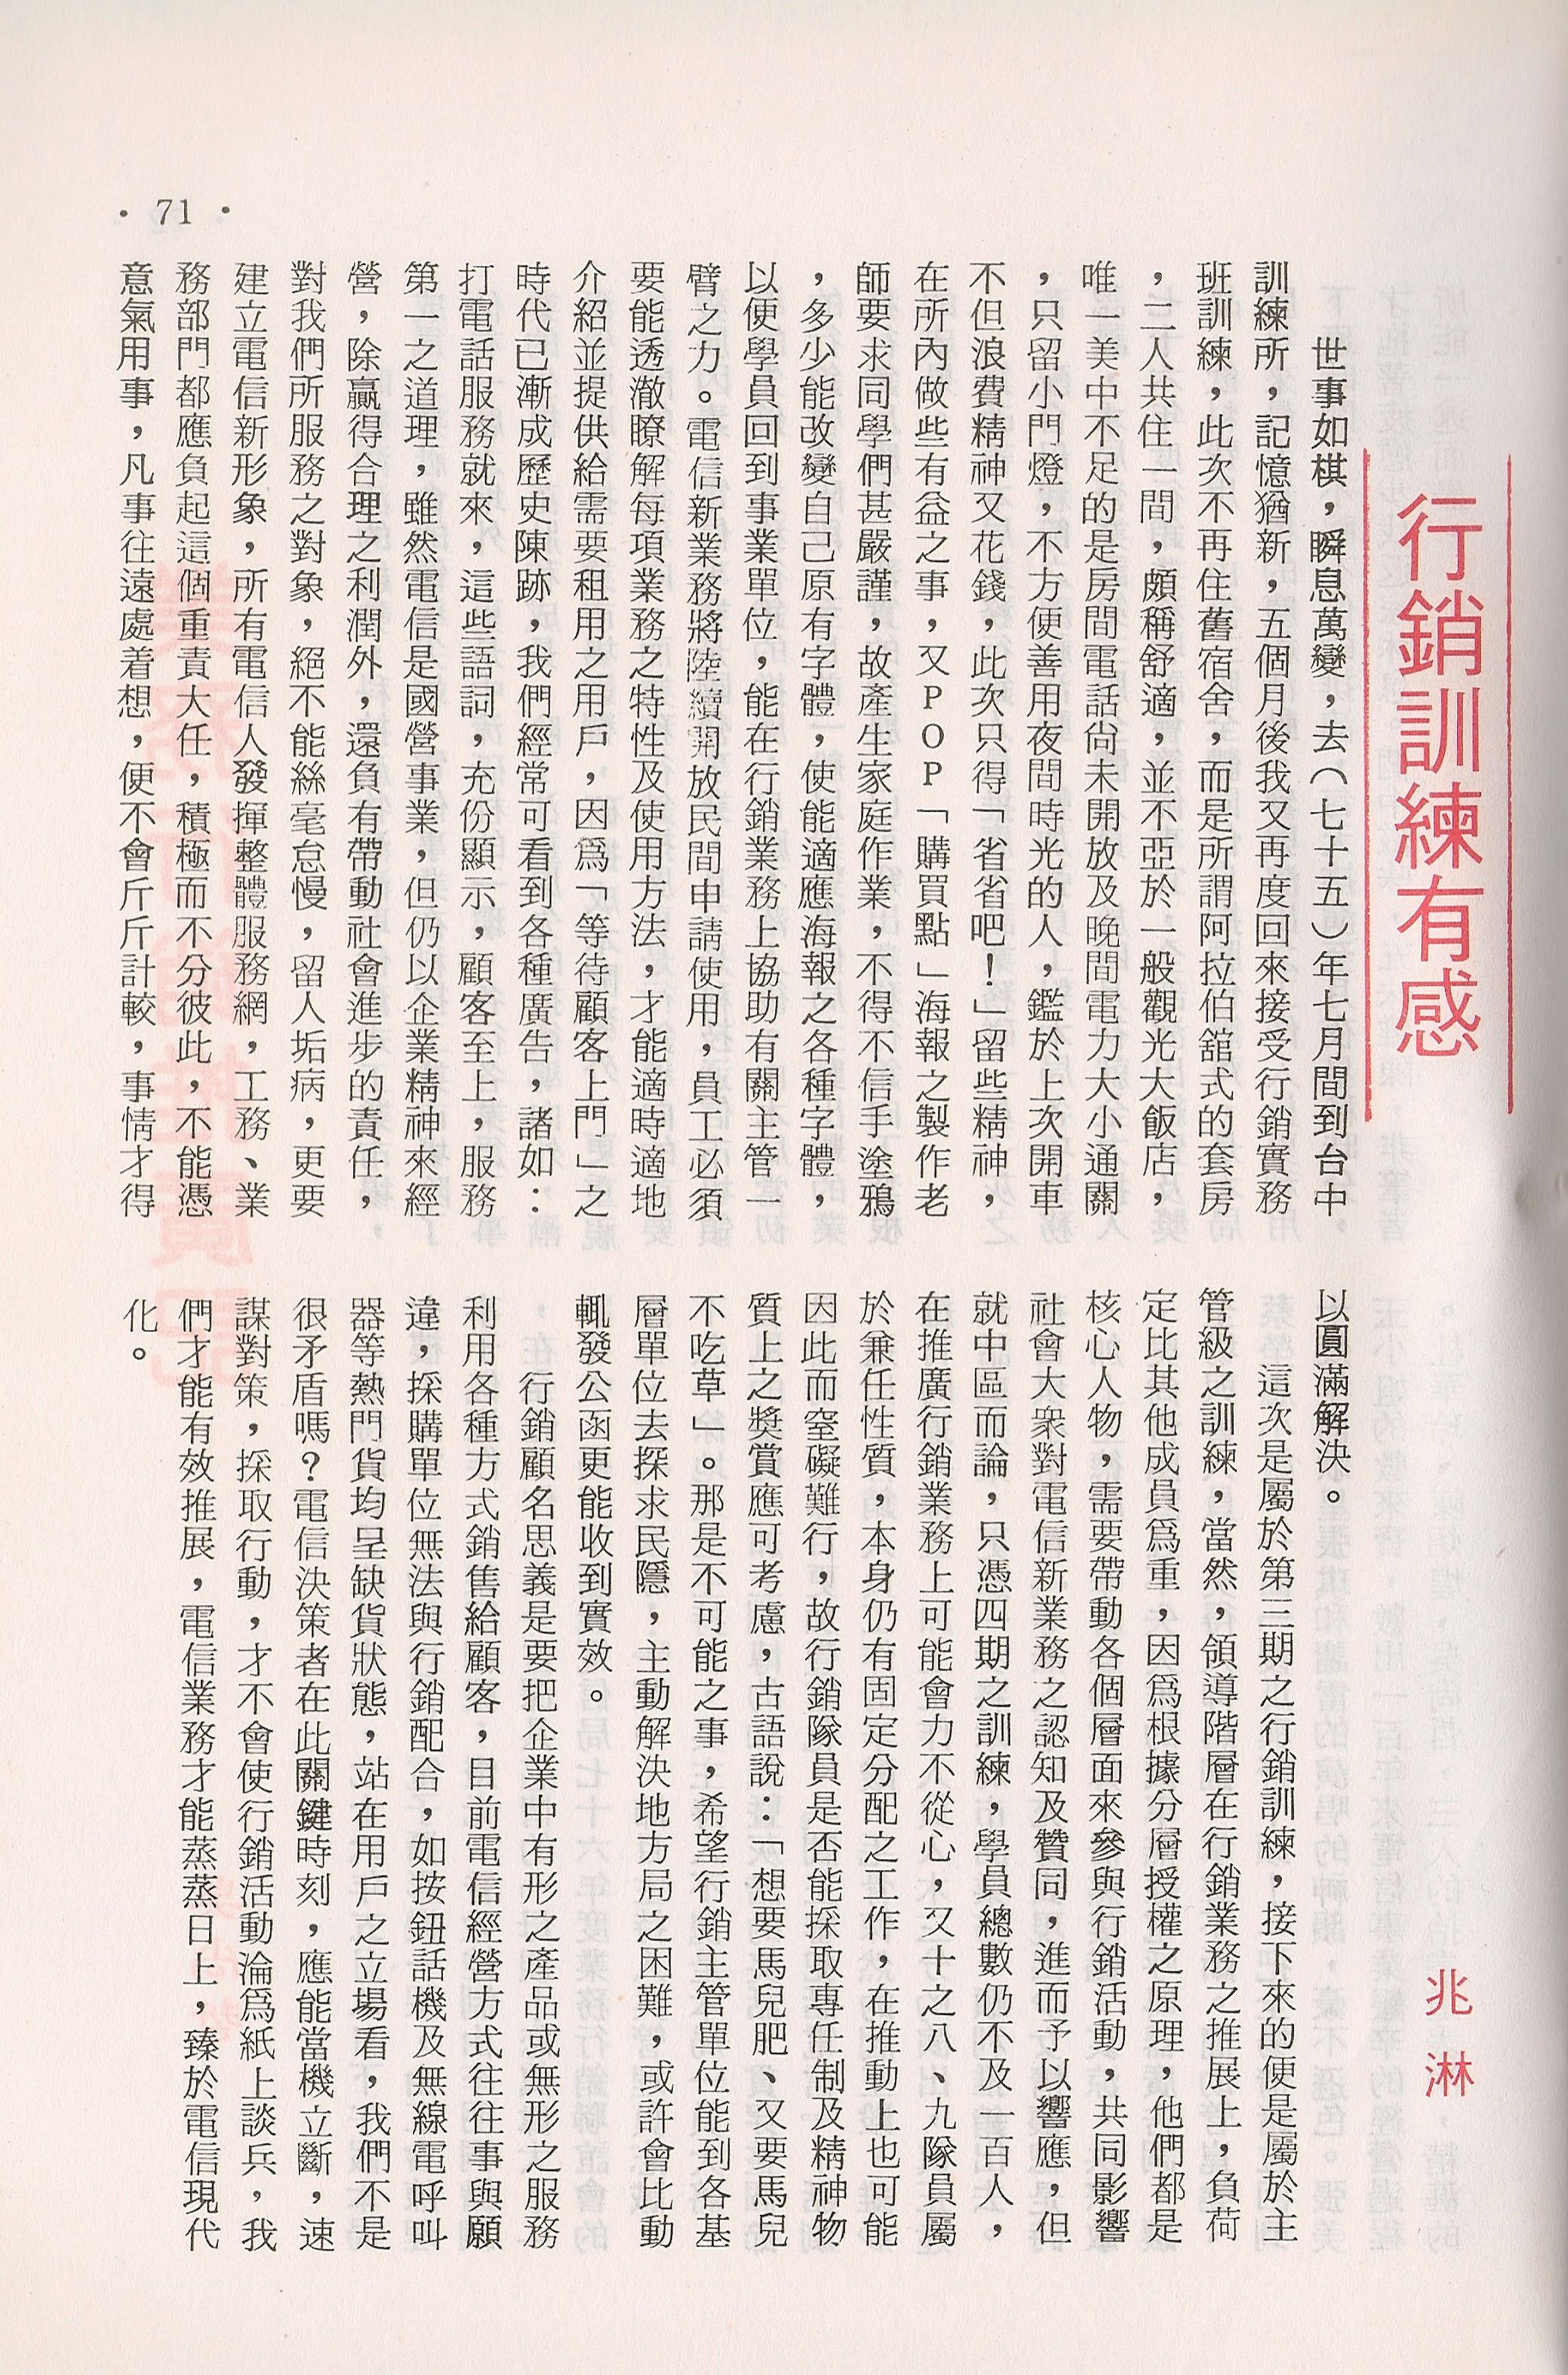 行銷訓練有感
兆淋
世事如棋，瞬息萬變，去（七十五）年七月間到台中
訓練所，記憶猶新，五個月後我又再度回來接受行銷實務
班訓練，此次不再住舊宿舍，而是所謂阿拉伯舘式的套房
，二人共住一間，頗稱舒適，並不亞於一般觀光大飯店，
唯一美中不足的是房間電話尚未開放及晚間電力大小通關
，只留小門燈，不方便善用夜間時光的人，鑑於上次開車
不但浪費精神又花錢，此次只得「省省吧！」留些精神，
在所內做些有益之事，又POP「購買點」海報之製作老
師要求同學們甚嚴謹，故產生家庭作業，不得不信手塗鴉
，多少能改變自己原有字體，使能適應海報之各種字體，
以便學員回到事業單位，能在行銷業務上協助有關主管一
臂之力。電信新業務將陸續開放民間申請使用，員工必須
要能透澈瞭解每項業務之特性及使用方法，才能適時適地
介紹並提供給需要租用之用戶，因爲「等待顧客上門」之
時代已漸成歷史陳跡，我們經常可看到各種廣告，諸如：
打電話服務就來，這些語詞，充份顯示，顧客至上，服務
第一之道理，雖然電信是國營事業，但仍以企業精神來經
營，除贏得合理之利潤外，還負有帶動社會進步的責任，
對我們所服務之對象，絕不能絲毫怠慢，留人垢病，更要
建立電信新形象，所有電信人發揮整體服務網，工務、業
務部門都應負起這個重責大任，積極而不分彼此，不能憑
意氣用事，凡事往遠處着想，便不會斤斤計較，事情才得
以圓滿解決。
這次是屬於第三期之行銷訓練，接下來的便是屬於主
管級之訓練，當然，領導階層在行銷業務之推展上，負荷
定比其他成員爲重，因爲根據分層授權之原理，他們都是
核心人物，需要帶動各個層面來參與行銷活動，共同影響
社會大衆對電信新業務之認知及贊同，進而予以響應，但
就中區而論，只憑四期之訓練，學員總數仍不及一百人，
在推廣行銷業務上可能會力不從心，又十之八、九隊員屬
於兼任性質，本身仍有固定分配之工作，在推動上也可能
因此而窒礙難行，故行銷隊員是否能採取專任制及精神物
質上之獎賞應可考慮，古語說：「想要馬兒肥、又要馬兒
不吃草」。那是不可能之事，希望行銷主管單位能到各基
層單位去探求民隱，主動解決地方局之困難，或許會比動
輒發公函更能收到實效。
行銷顧名思義是要把企業中有形之產品或無形之服務
利用各種方式銷售給顧客，目前電信經營方式往往事與願
違，採購單位無法與行銷配合，如按鈕話機及無線電呼叫
器等熱門貨均呈缺貨狀態，站在用戶之立場看，我們不是
很矛盾嗎？電信決策者在此關鍵時刻，應能當機立斷，速
謀對策，採取行動，才不會使行銷活動淪爲紙上談兵，我
們才能有效推展，電信業務才能蒸蒸日上，臻於電信現代
化。
• 71 •